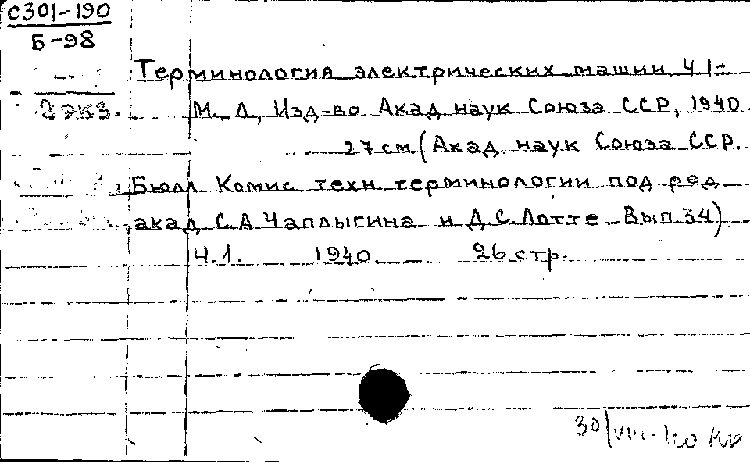 С301-190
Б-98
2 экз.
Терминология электрических машин Ч 1-
М. Л, Изд-во Акад наук Союза ССР, 1940
27 см. (Акад наук Союза ССР.
Бюлл Комис техн. терминологии под ред
акад С.А. Чаплыгина и Д.С. Лотте Вып. 34)
Ч.1. 1940 26 стр.
30/VIII-